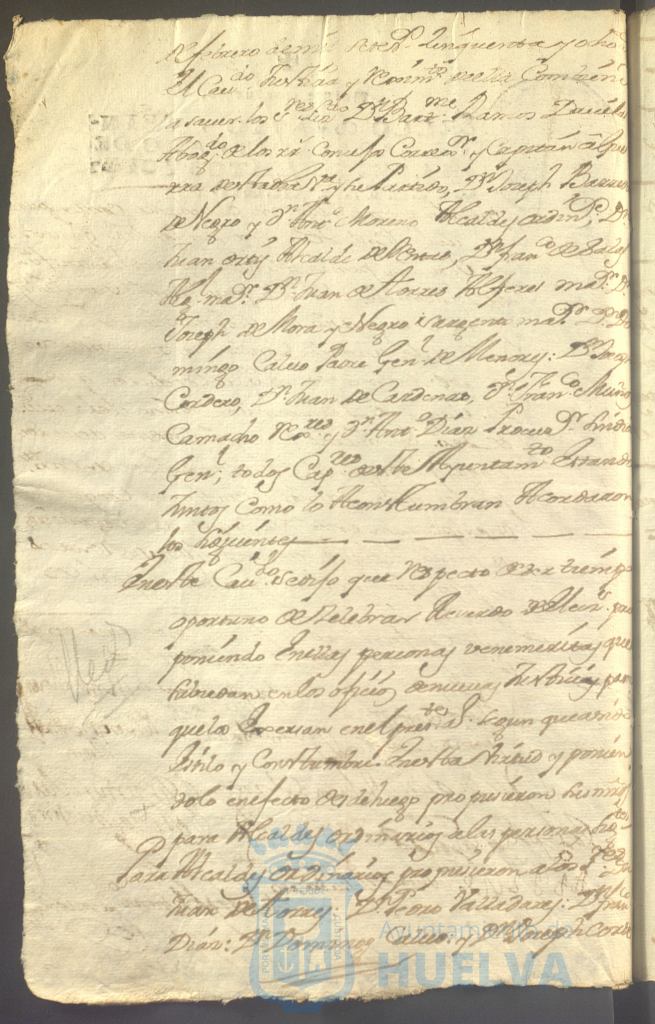 de febrero de mil setes.ᵒˢ Cinquenta y ocho
El Cav.ᵈᵒ Justicia y
a saver los S.ʳᵉˢ Liz.ᵈᵒ Dⁿ Bart.ᵐᵉ Ramos Davila
Abog.ᵈᵒ de los R.ˢ Consejos Correx.ʳ y Capitan a Gue
rra de esta y su Partido, Dⁿ Joseph Barre
de Negro y Dⁿ Ant.ᵒ Moreno Alcaldes ordin.ˢ, Dⁿ
Juan Alcalde Dⁿ Fran.ᶜᵒ de
ma.ʳ Dⁿ Juan de Torres Alferes ma.ʳ Dⁿ
Joseph de Mora y Negro Sargento ma.ʳ Dⁿ Do
mingo Calero Padre Gen.ˡ de Menores: Dⁿ Joseph
Cordero, Dⁿ Juan de Cardenas, Dⁿ Fran.ᶜᵒ Muño
Camacho Rex.ʳᵉˢ y Dⁿ Ant.ᵒ Díaz Procur.ʳ Síndic
Gen.ˡ; todos Cap.ʳᵉˢ de este Ayuntam.ᵗᵒ Estando
Juntos Como lo Acostumbran Acordaron
lo siguiente
En este Cav.ᵈᵒ se dijo que respecto de ser tiempo
oportuno de Selebrar Acuerdo de Elecc.ˢ pro
poniendo En ellas personas venemeritas que
subsedan en los ofiçios de nuevas Justiçias para
que los Exersan en el pres.ᵗᵉ a.ᵒ segun que a sido
Estilo y Constumbre En esta Virtud y ponien
dolo en efecto desde luego propusieron sus m.ᵈˢ
para Alcaldes ordinarios a las personas
Para Alcaldes ordinarios propusieron a los S.ʳᵉˢ Dⁿ
Juan de Torres: Dⁿ Pedro Valladares: Dⁿ Fran.ᶜᵒ
Díaz: Dⁿ Domingo Calero: y Dⁿ Joseph Corde
Ayuntamiento de
HUELVA